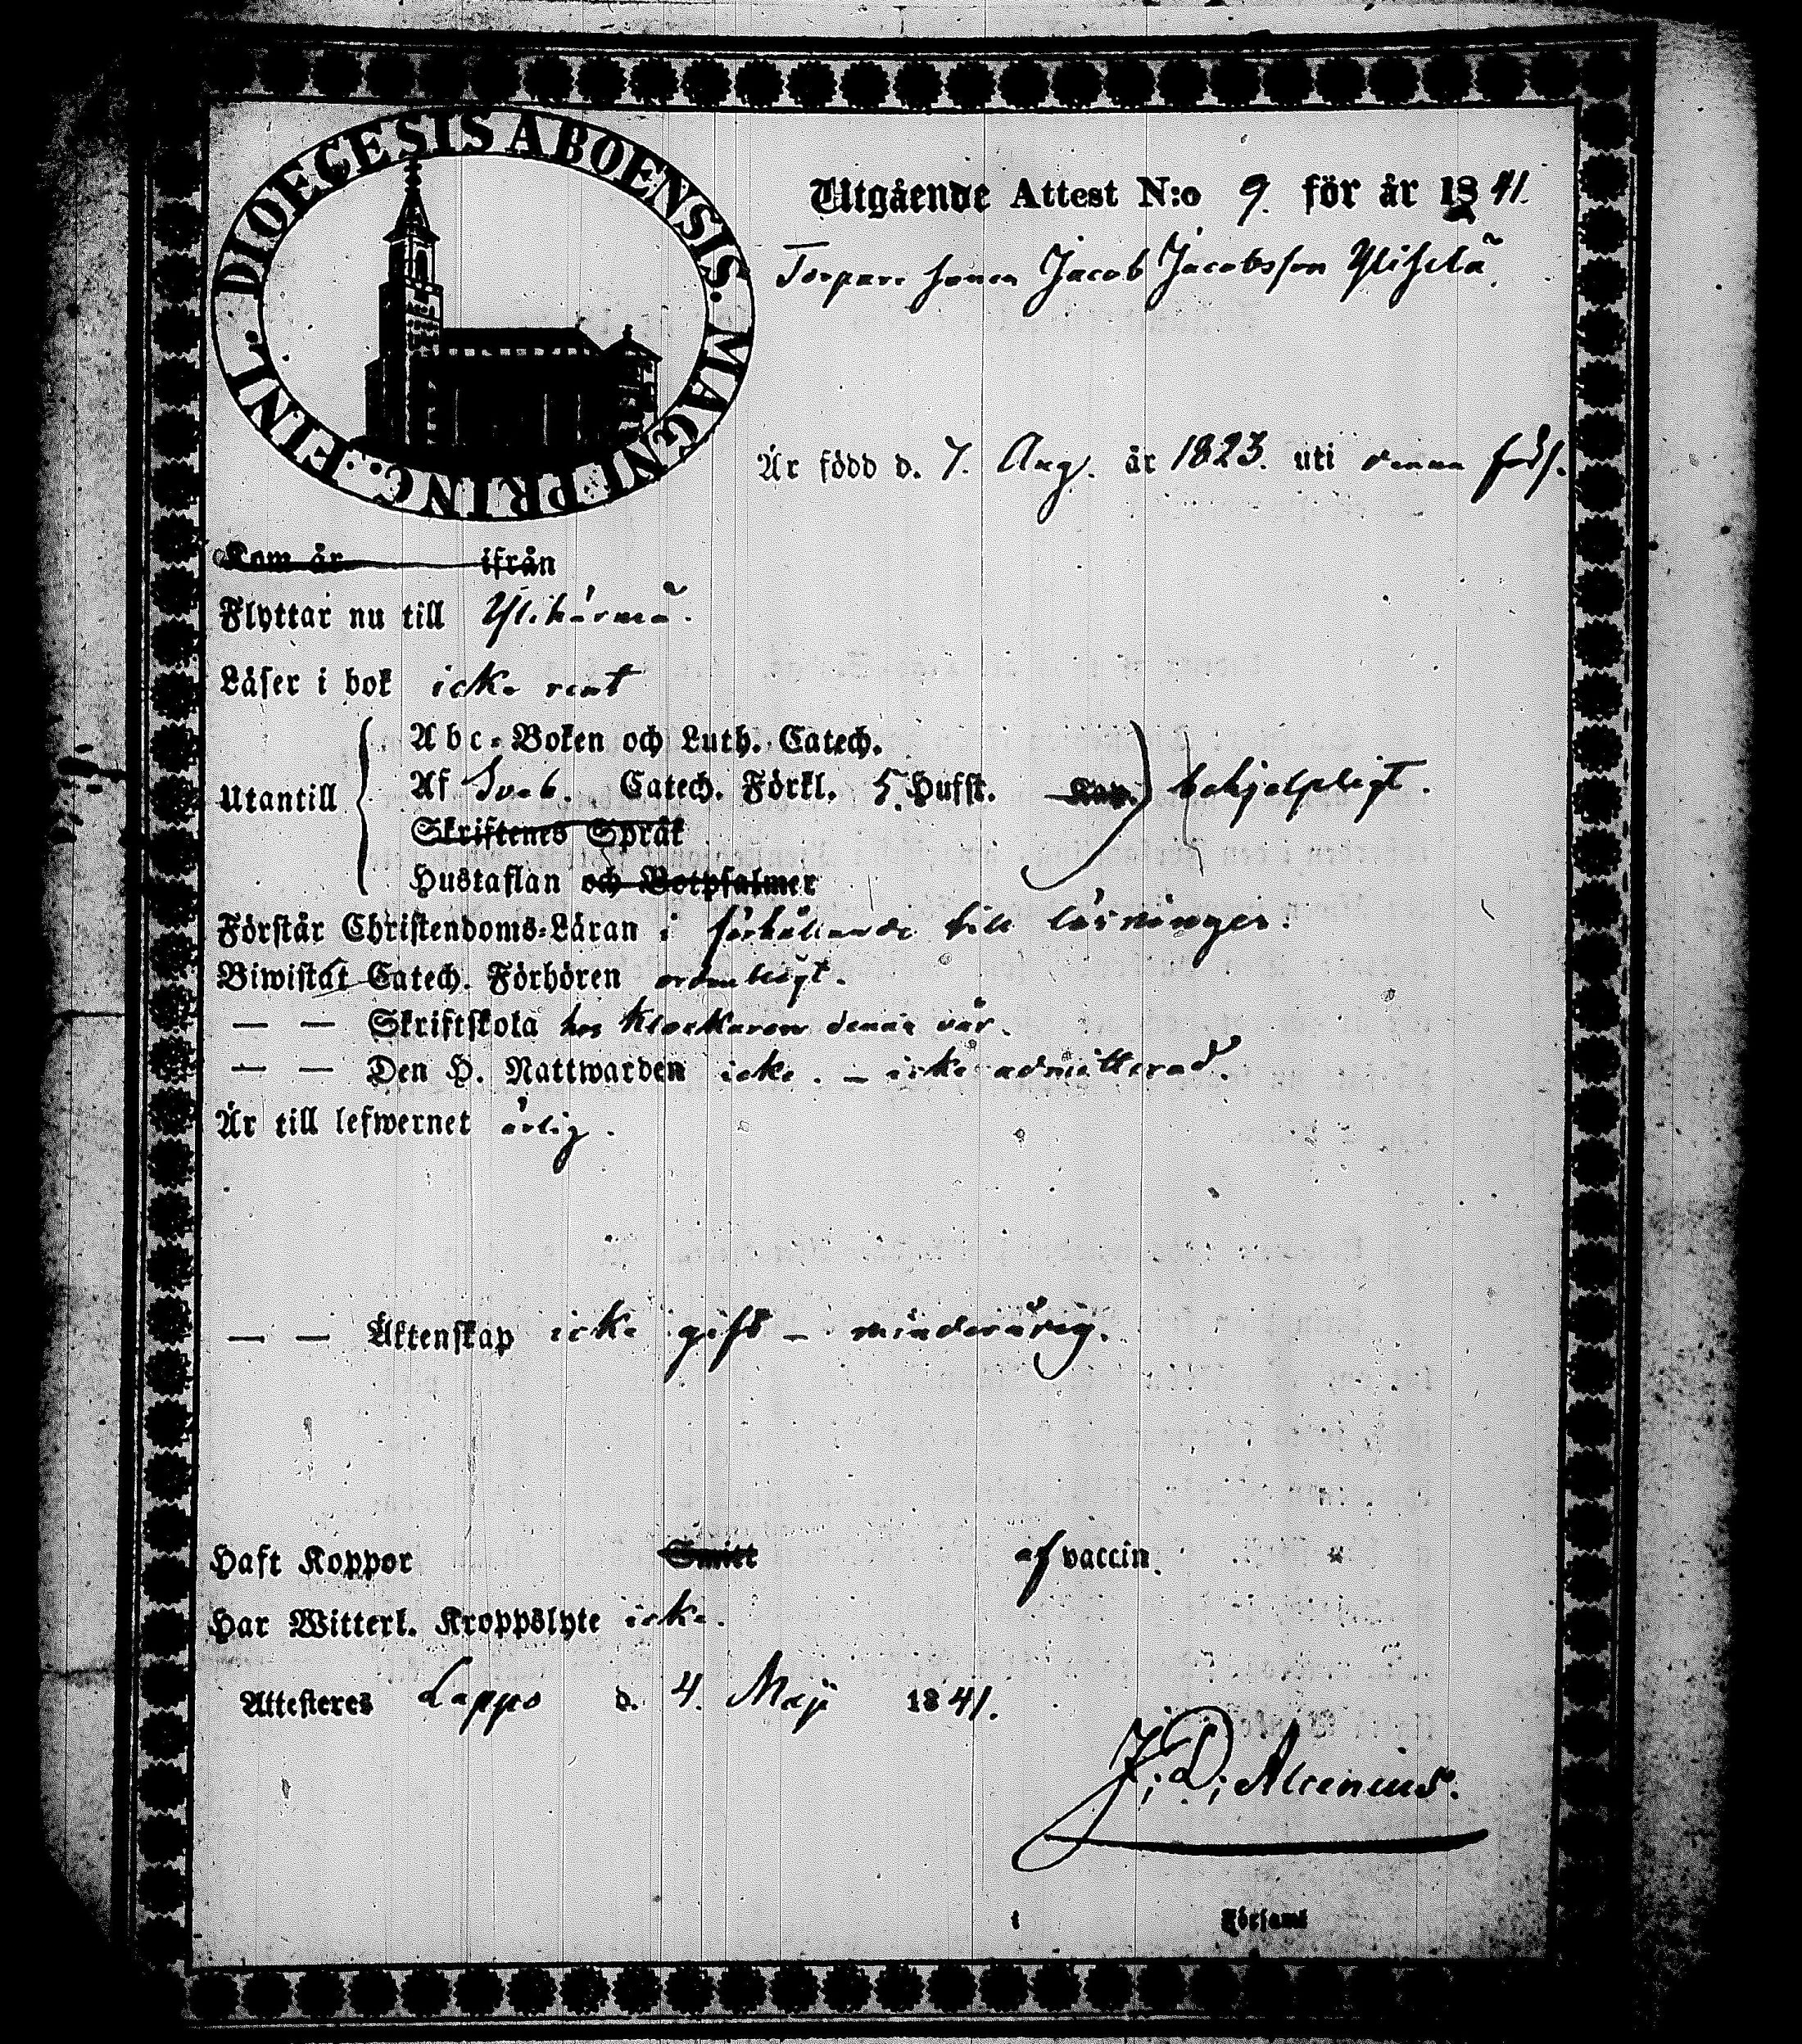 DIOECESIS ABOENSIS. MAGNI PRINC. FINL.
Utgående Attest N:o 9. för år 1841.
Torpare sonen Jacob Jacobsson Yliselä.
Är född d. 7. Aug. år 1823. uti denna förs.
Kom år ifrån
Flyttar nu till Ylihärmä.
Läser i bok icke rent
Utantill
Abc-Boken och Luth. Catech.
Af Sveb. Catech. Förkl. 5. Hufst. Kap. behjelpligt.
Skriftenes Språk
Hustaflan och Botpsalmer
Förstår Christendoms-Läran i förhållande till läsningen.
Biwistat Catech. Förhören ordentligt.
— — Skriftskola hos Klockaren denna vår.
— — Den H. Nattwarden icke. – icke admitterad.
Är till lefwernet ärlig.
— — Äktenskap icke gift – minderårig.
Haft Koppor Smitt af vaccin.
Har Witterl. Kroppslyte icke.
Attesteres Lappo d. 4. Maji 1841.
J. D. Alcenius.
i Församl